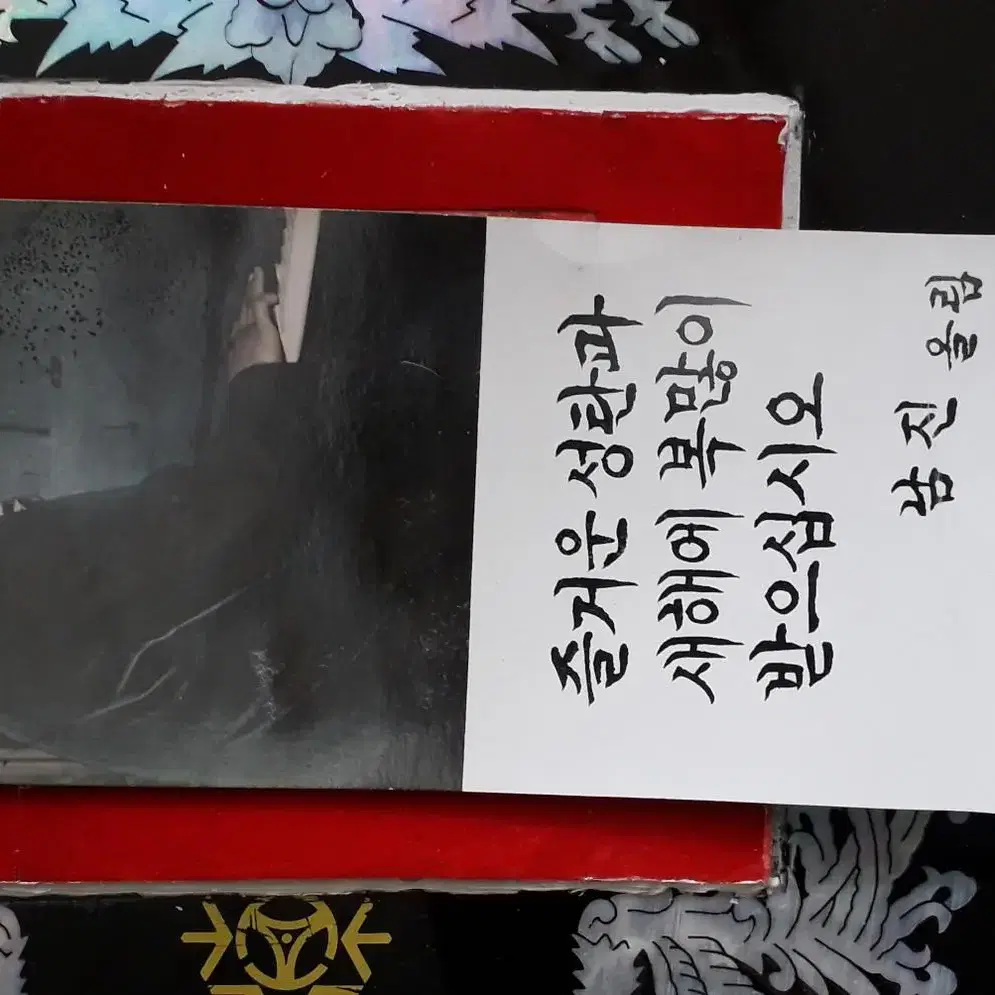 즐거운 성탄과
새해에 복 많이
받으십시오
남진 올림